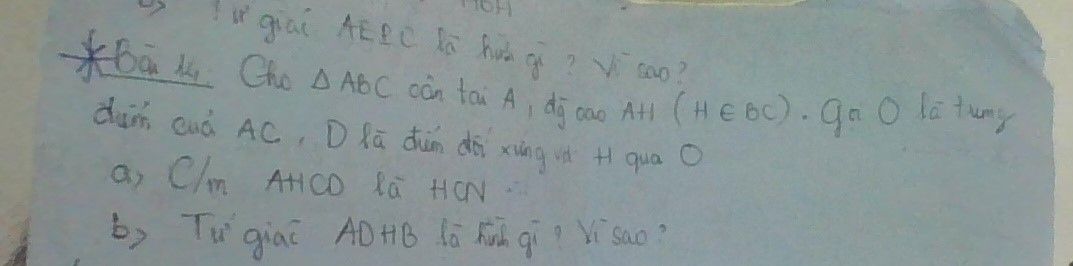 Tứ giác AEBC là hình gì? Vì sao?
* Bài 14, Cho Δ ABC cân tại A, đg cao AH (H ∈ BC). Gọi O là trung
điểm của AC, D là điểm đối xứng với H qua O
a, C/m AHCD là HCN
b, Tứ giác ADHB là hình gì? Vì sao?